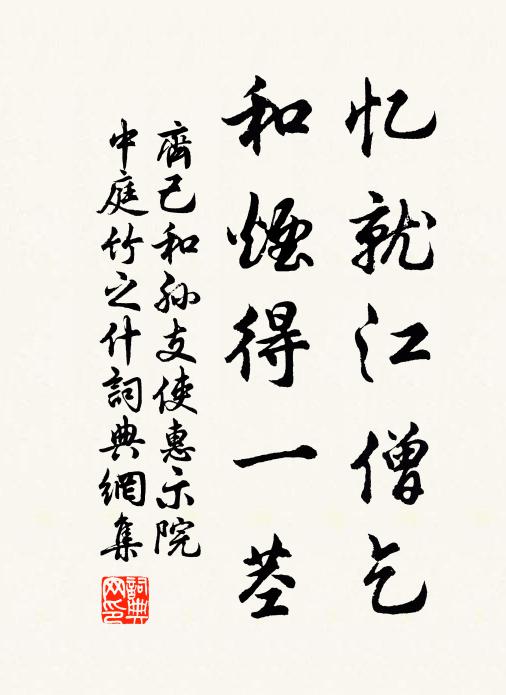 忆就江僧乞
和煙得一茎
齊己和孙支使惠示院
中庭竹之什詞典網集
詞典网印